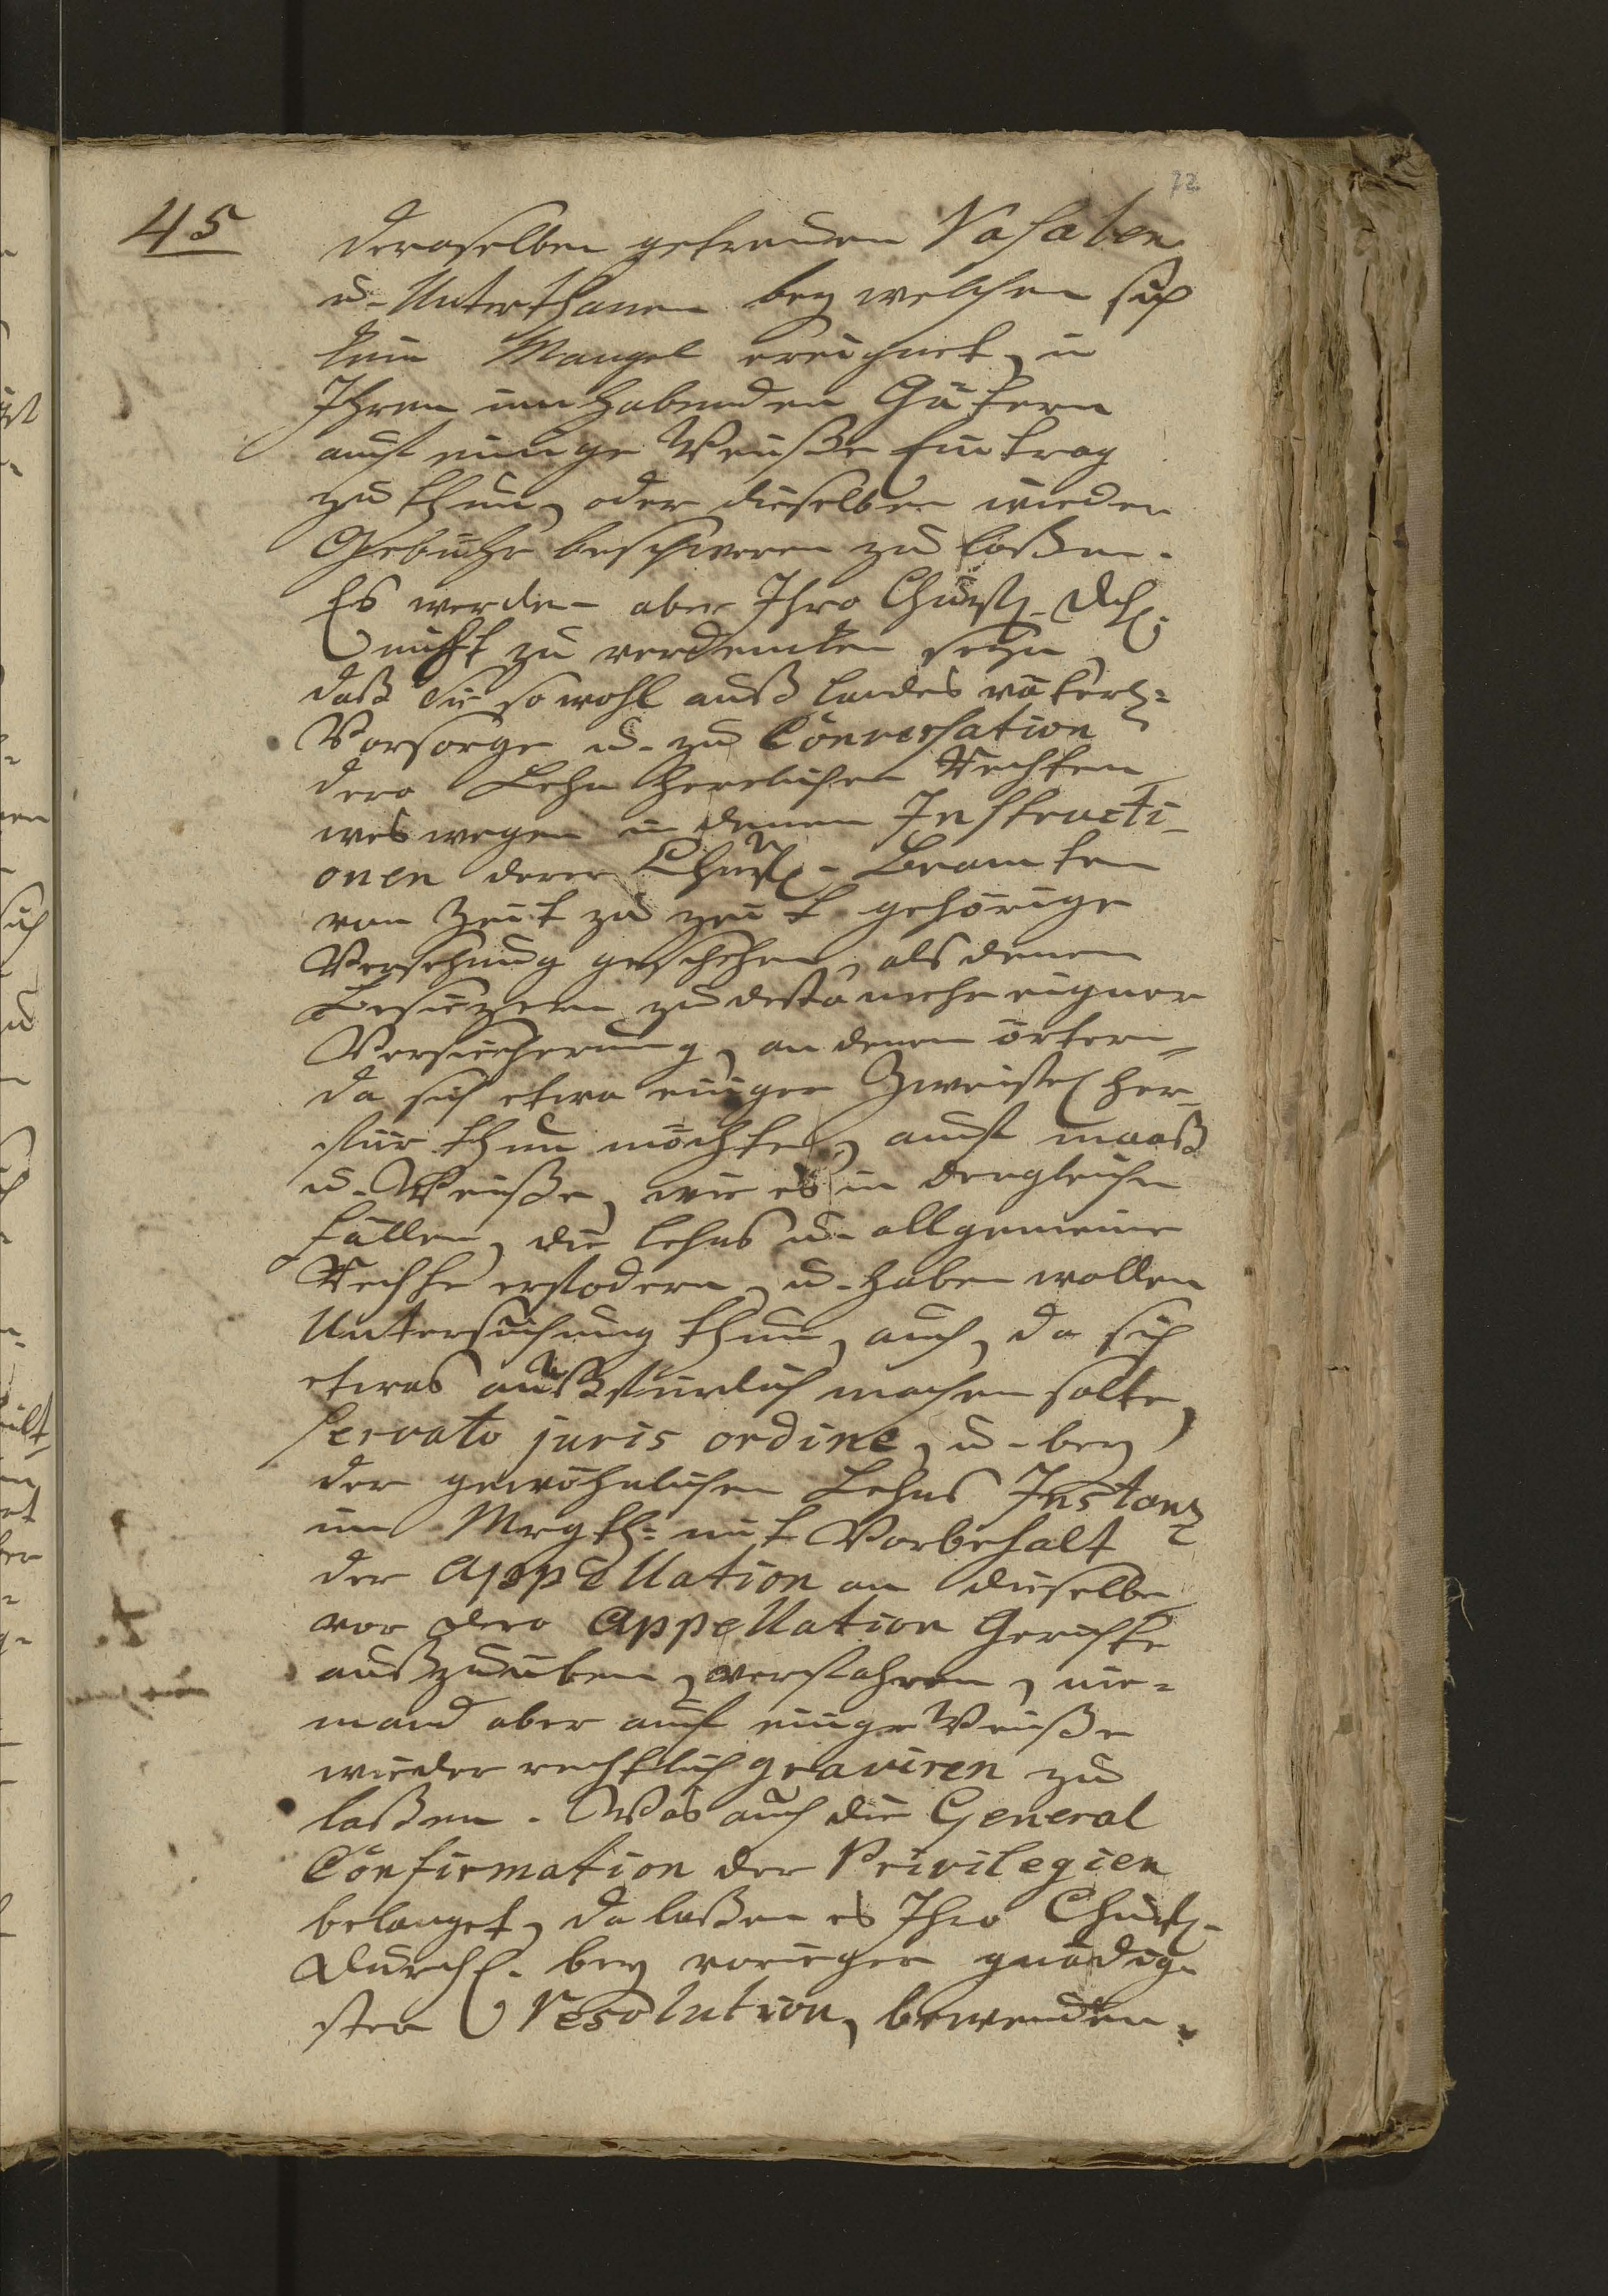 72.
45
deroselben getreuen Vasalen
u. Unterthanen bey welchen sich
kein Mangel ereignet, in
Ihren innhabenden Gütern
auf einige Weiße Eintrag
zu thun, oder dieselben wieder
Gebühr beschweren zu laßen.
Es werden aber Ihro Churfl. Dchl.
nicht zu verdencken seyn,
daß Sie so wohl auß landes väterl:
Vorsorge u. zu Conversation
dero Lehn herrlichen Rechten
weswegen in denen Instructi-
onen derer Churfl. Beamten
von Zeit zu zeit gehörige
Versehung geschehen, als denen
Besitzern zu desto mehr eigner
Versicherung, an denen örtern,
da sich etwa einiger Zweifel her-
für thun möchte, auf maaß
u. Weiße, wie es in dergleichen
fällen, die lehns u. allgemeine
Rechte erfodern, u. haben wollen
Untersuchung thun, auch, da sich
etwas außfürlich machen solte,
servato juris ordine, u. bey
der gewöhnlichen Lehns Instanz
im Mrgth: mit Vorbehalt
der Appellation an dieselbe
vor dero Appellation Gerichte
außzuüben, verfahren, nie-
mand aber auf einige Weiße
wieder rechtlich graviren zu
laßen. Was auch die General
Confirmation der Privilegien
belanget, da laßen es Ihro Churfl.
Durchl. bey voriger gnädig-
sten Resolution, bewenden.